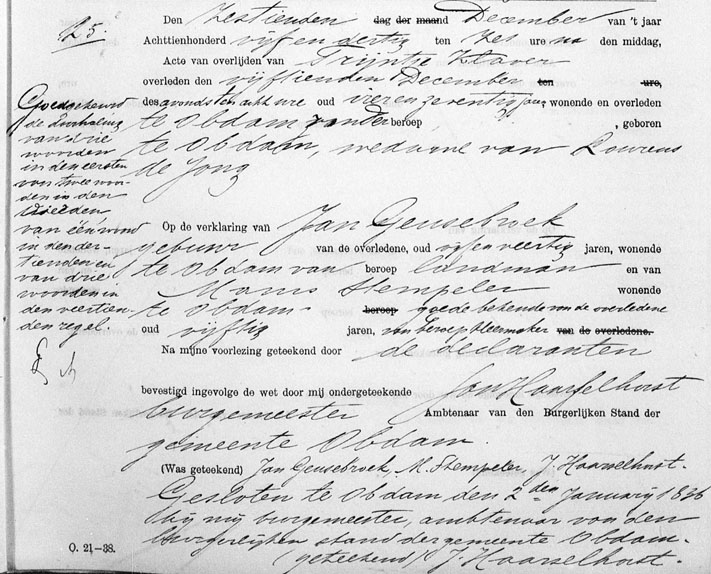 25.
Den zestienden dag der maand December van 't jaar
Achttienhonderd vijf en dertig ten zes ure na den middag,
Acte van overlijden van Trijntje Klaver
overleden den vijftienden December ten ure,
des avonds ten acht ure oud vier en zeventig jaar wonende en overleden
te Obdam zonder beroep , geboren
te Obdam, weduwe van Lourens
de Jong
Op de verklaring van Jan Geusebroek
gebuur van de overledene, oud vijf en veertig jaren, wonende
te Obdam van beroep landman en van
Manis Stempeler wonende
te Obdam beroep goede bekende van de overledene
oud vijftig jaren, van beroep kleermaker van de overledene.
Na mijne voorlezing geteekend door de declaranten
bevestigd ingevolge de wet door mij ondergeteekende Jan Haarselhorst
burgemeester Ambtenaar van den Burgerlijken Stand der
gemeente Obdam.
(Was geteekend) Jan Geusebroek, M. Stempeler, J. Haarselhorst.
Gesloten te Obdam den 2den January 1836
bij mij burgemeester, ambtenaar van den
burgerlijken stand der gemeente Obdam.
(geteekend) J. Haarselhorst.
Goedgekeurd
de doorhaling
van drie
woorden
in den eersten
van twee woor-
den in den
vierden,
van één woord
in den der-
tienden en
van drie
woorden in
den veertien-
den regel.
O. 21—38.